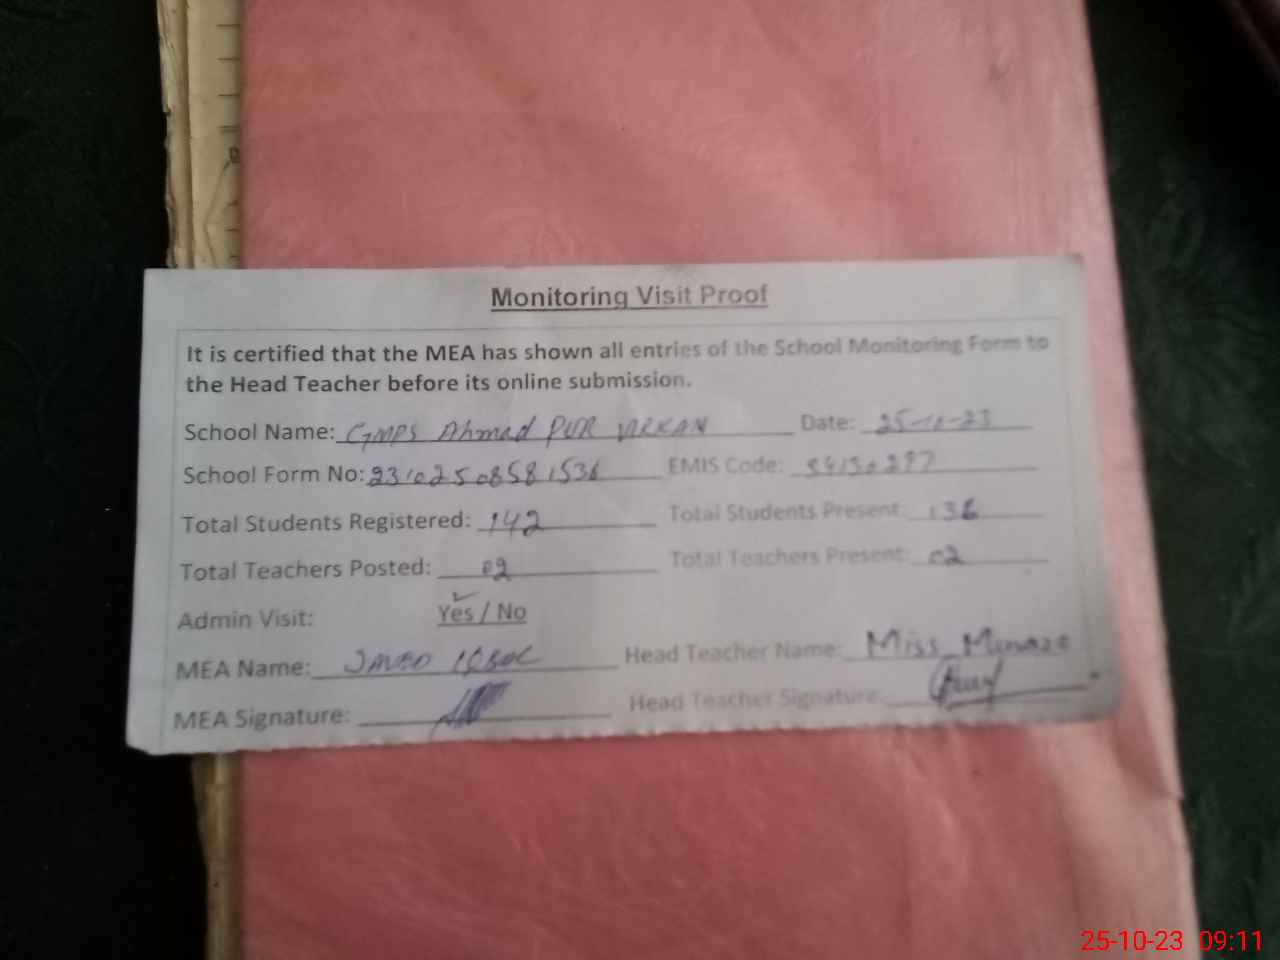 Monitoring Visit Proof
It is certified that the MEA has shown all entries of the School Monitoring Form to
the Head Teacher before its online submission.
School Name: GMPS Ahmad PUR VIRKAN Date: 25-10-23
School Form No: 23102508581536 EMIS Code:
Total Students Registered: 142 Total Students Present: 136
Total Teachers Posted: 02 Total Teachers Present: 02
Admin Visit: Yes / No
MEA Name: JAVED IQBAL Head Teacher Name: Miss
MEA Signature: Head Teacher Signature:
25-10-23 09:11